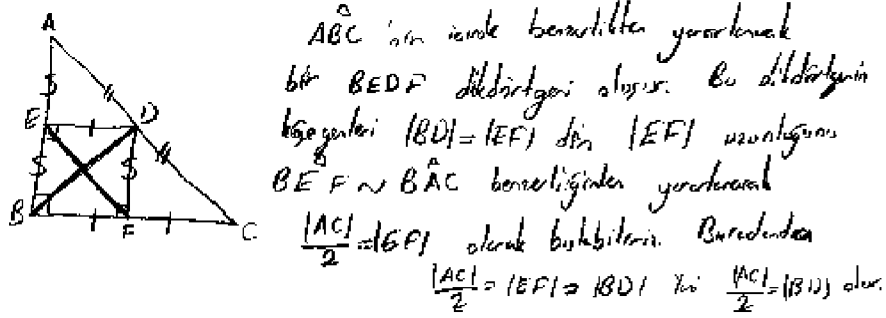 A
E
D
B
F
C
ABC 'nin içinde benzerlikten yararlanarak
bir BEDF dikdörtgeni oluşur. Bu dikdörtgenin
köşegenleri |BD|=|EF| dir |EF| uzunluğunu
BEF ~ BAC benzerliğinden yararlanarak
|AC|/2 = |EF| olarak bulabiliriz. Buradanda
|AC|/2 = |EF| = |BD| Yani |AC|/2 = |BD| olur.